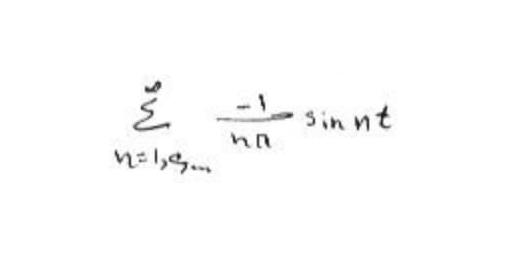 ∑_{n=1,2,...}^{∞} \frac{-1}{nπ} sin nt